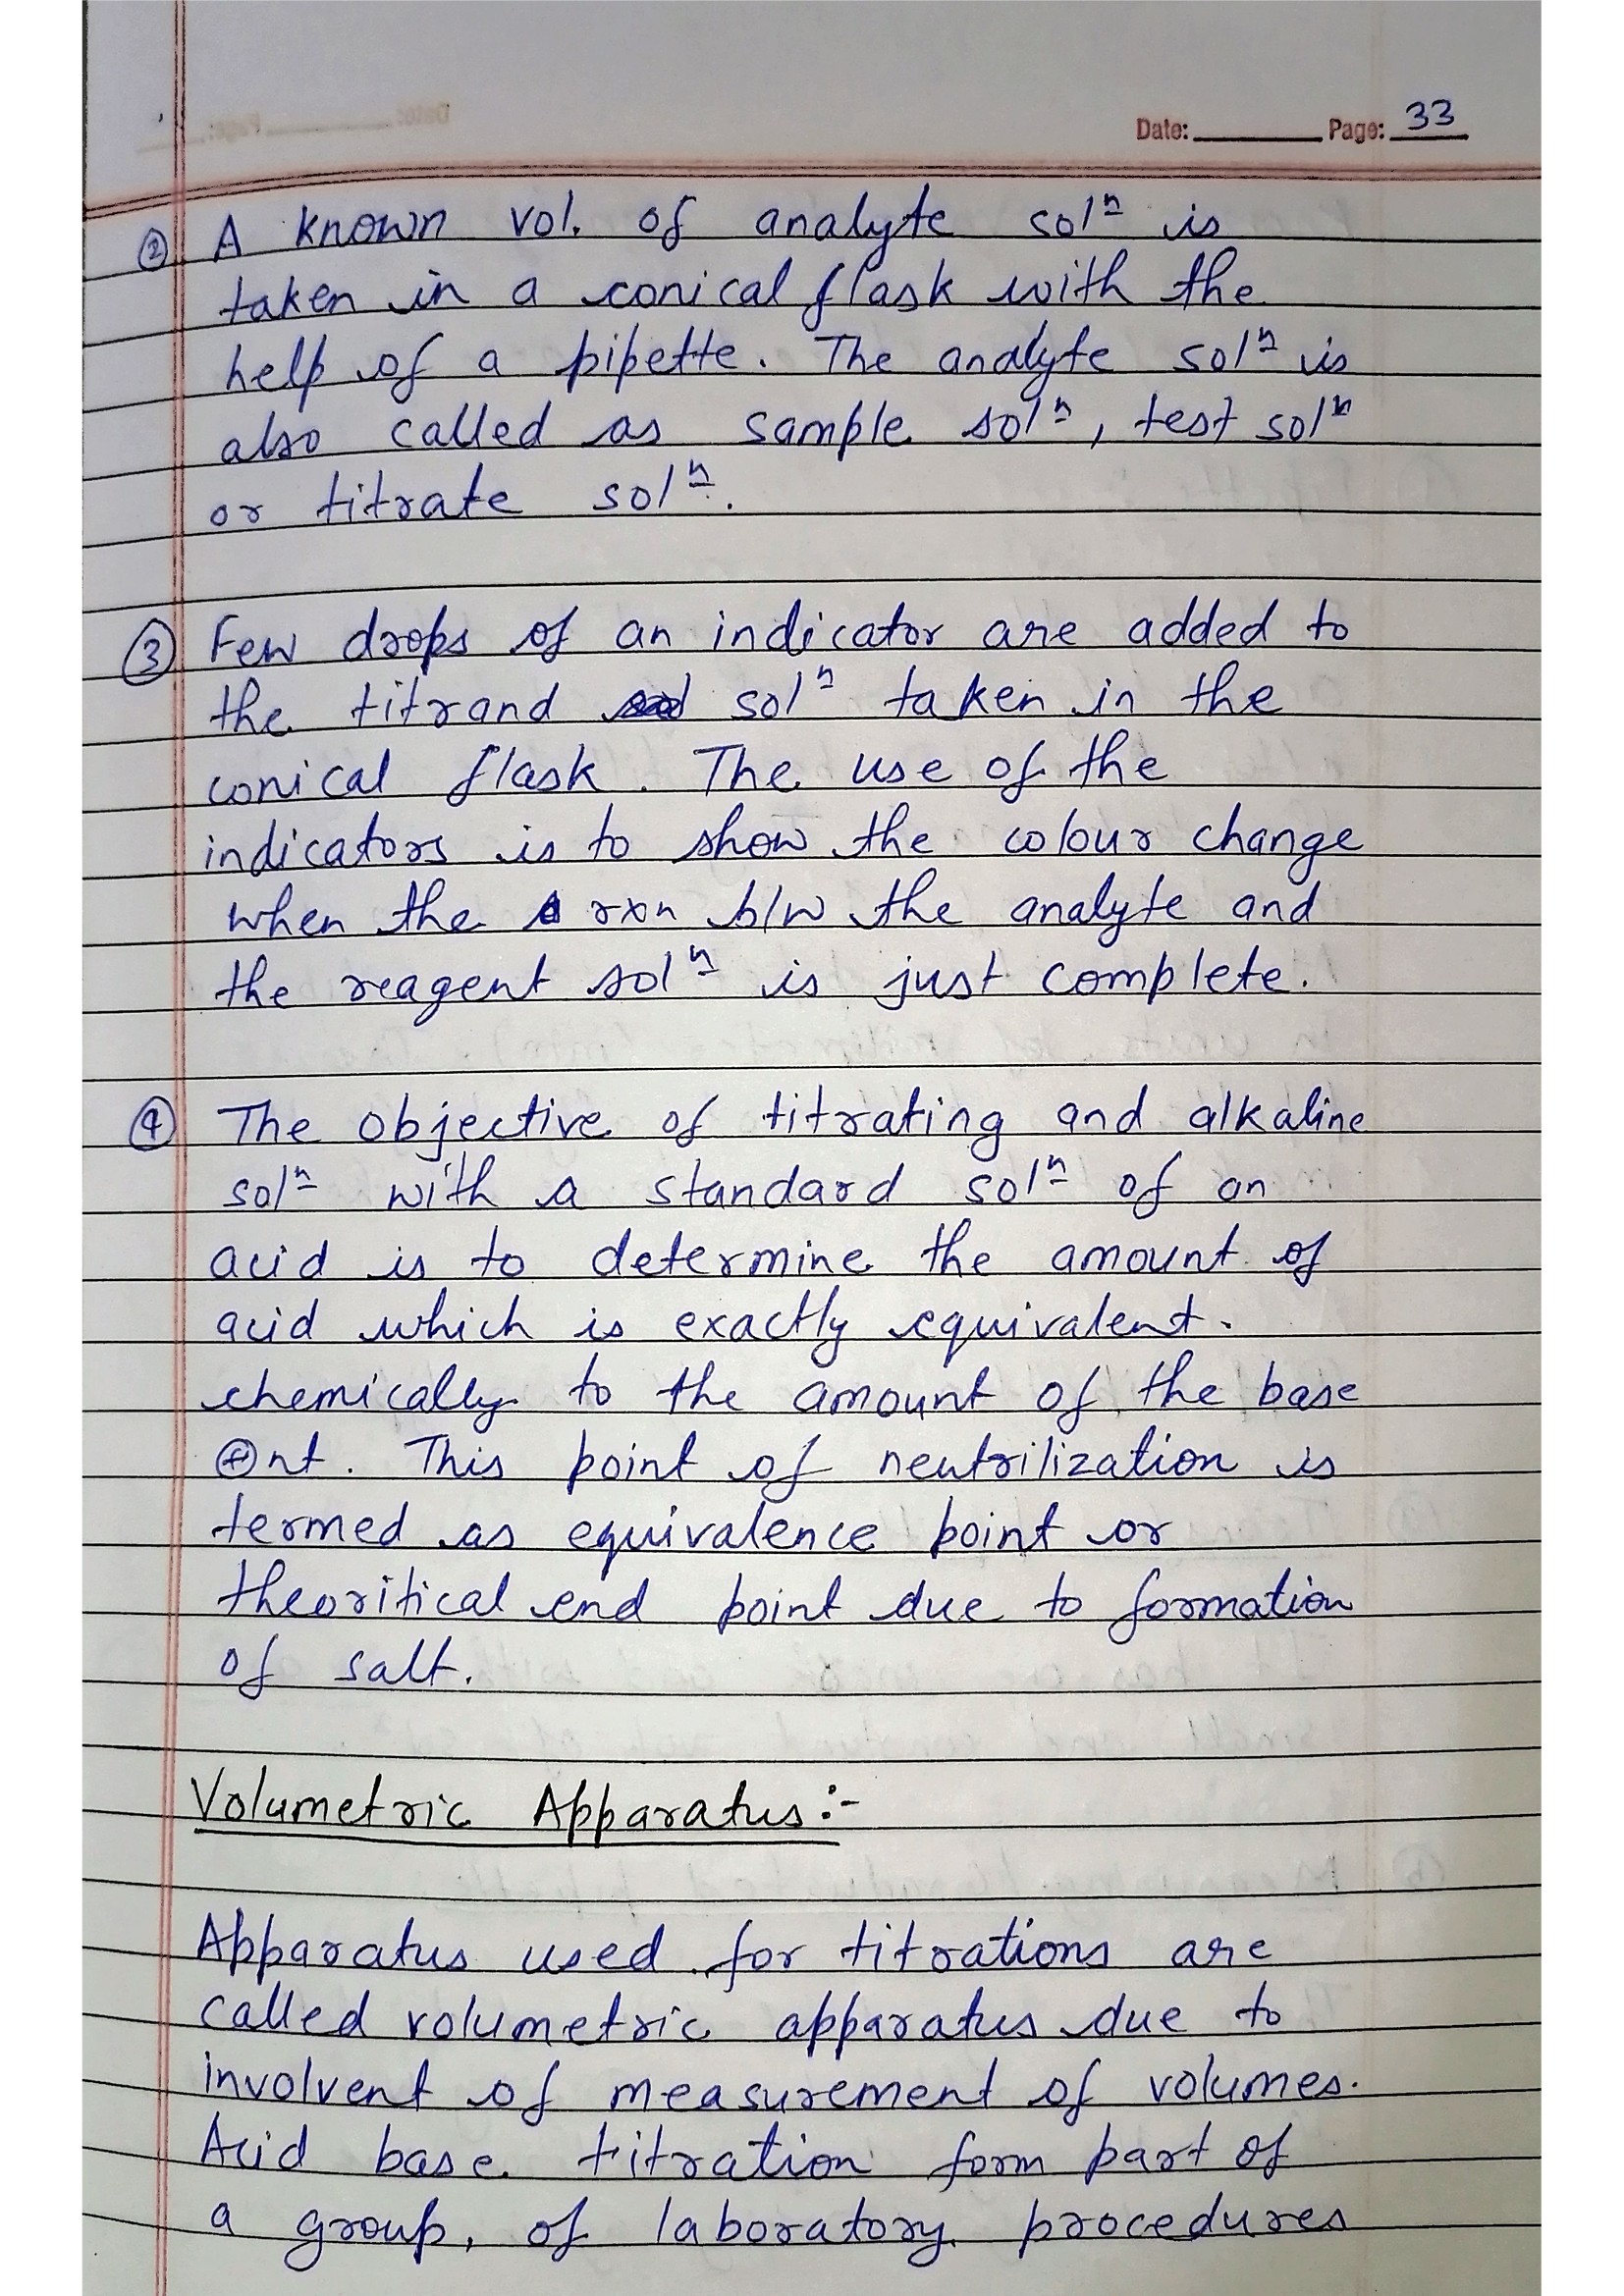 Date: Page: 33
② A known vol. of analyte solⁿ is
taken in a conical flask with the
help of a pipette. The analyte solⁿ is
also called as sample solⁿ, test solⁿ
or titrate solⁿ.
③ Few drops of an indicator are added to
the titrand solⁿ taken in the
conical flask. The use of the
indicators is to show the colour change
when the rxn b/w the analyte and
the reagent solⁿ is just complete.
④ The objective of titrating and alkaline
solⁿ with a standard solⁿ of an
acid is to determine the amount of
acid which is exactly equivalent.
chemically to the amount of the base
nt. This point of neutrilization is
termed as equivalence point or
theoritical end point due to formation
of salt.
Volumetric Apparatus :-
Apparatus used for titrations are
called volumetric apparatus due to
involvent of measurement of volumes.
Acid base titration form part of
a group, of laboratory procedures